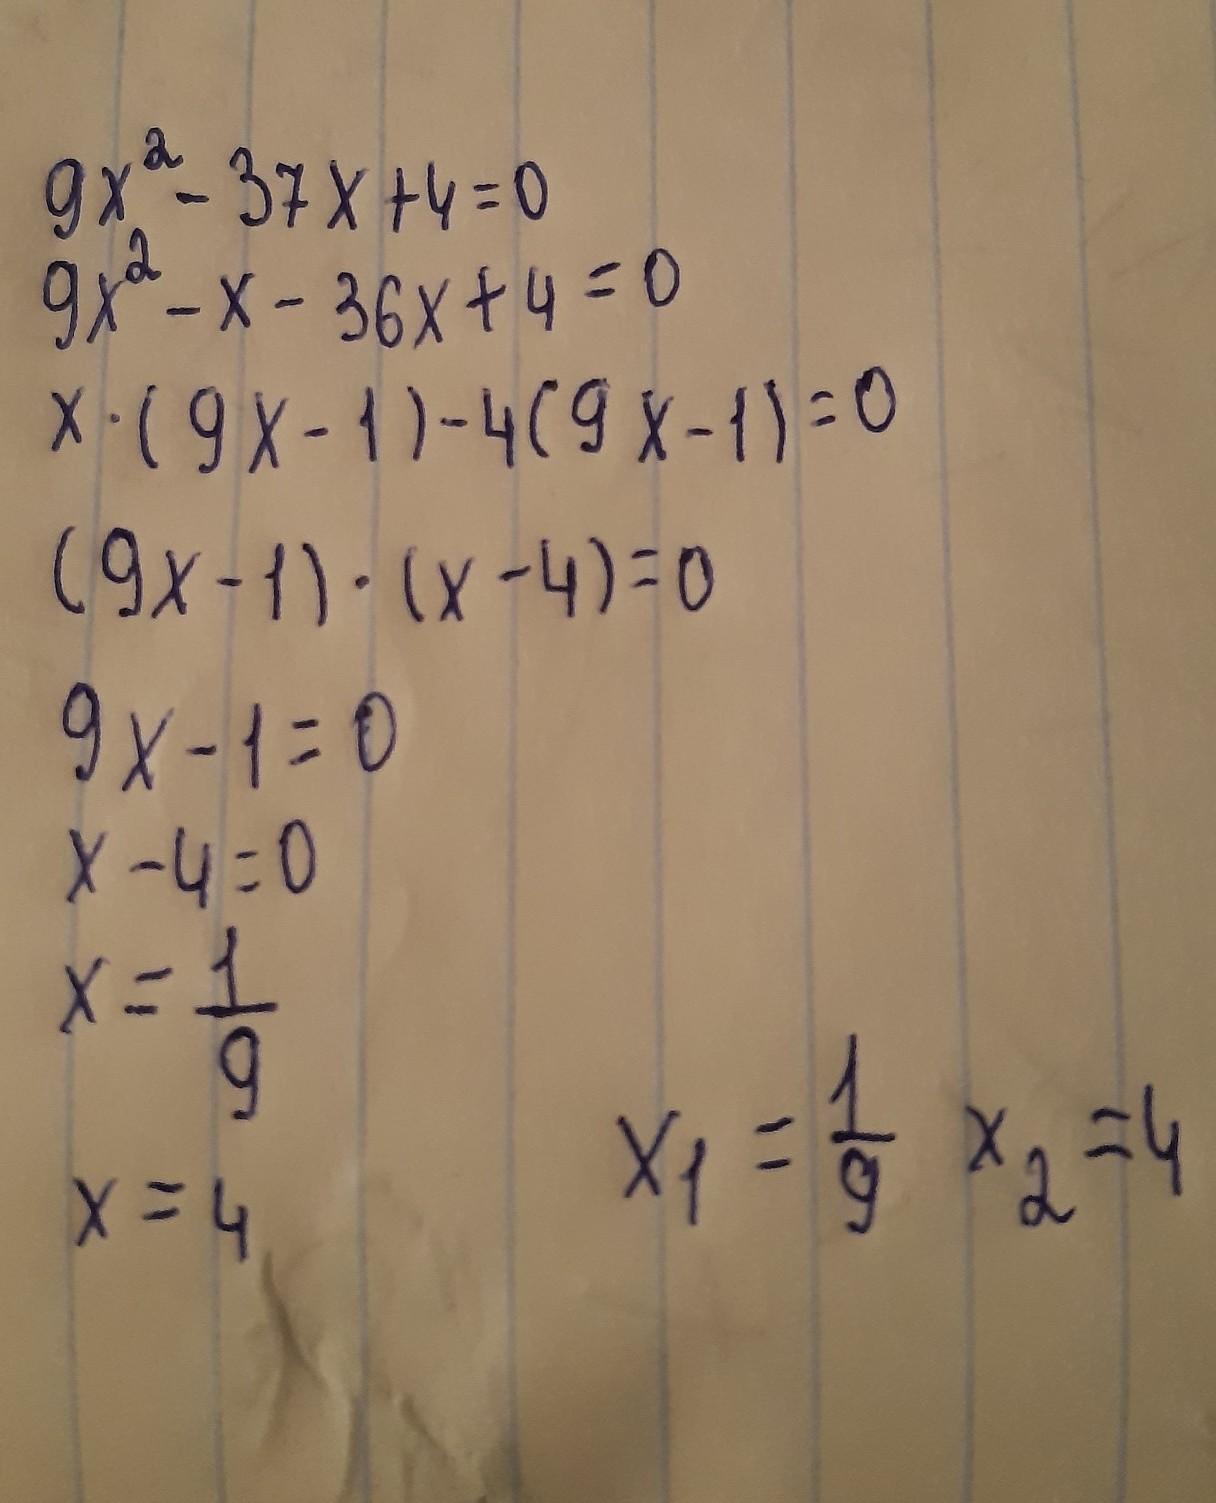 9x² - 37x + 4 = 0
9x² - x - 36x + 4 = 0
x · (9x - 1) - 4(9x - 1) = 0
(9x - 1) · (x - 4) = 0
9x - 1 = 0
x - 4 = 0
x = 1/9
x = 4
x₁ = 1/9 x₂ = 4